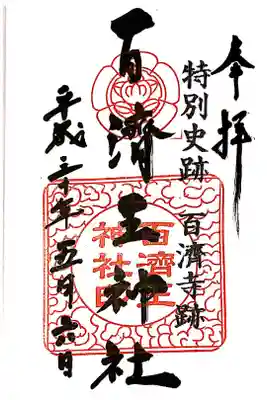 奉拝
特別史跡 百済寺跡
百濟王神社
平成二十年五月六日
百済王
神社印